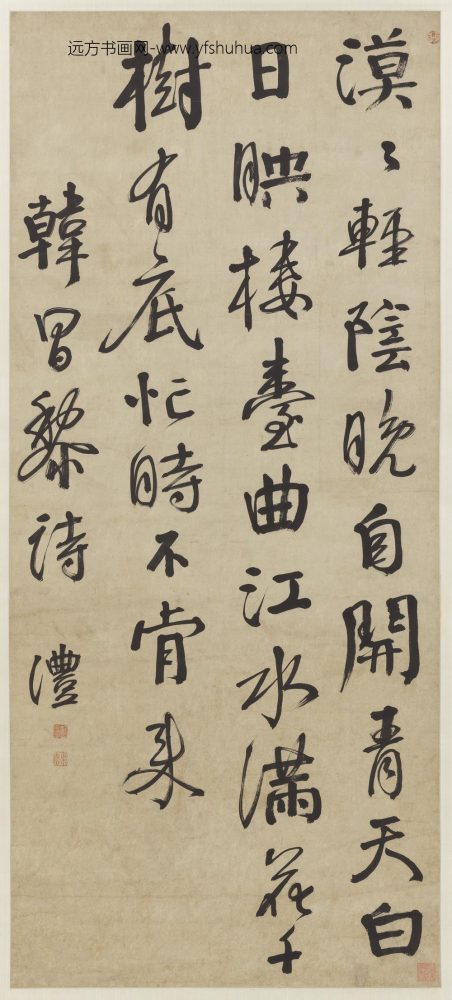 远方书画网-www.yfshuhua.com
漠〻輕陰晚自開青天白
日映樓臺曲江水滿花千
樹有底忙時不肯來
韓昌黎詩 澧